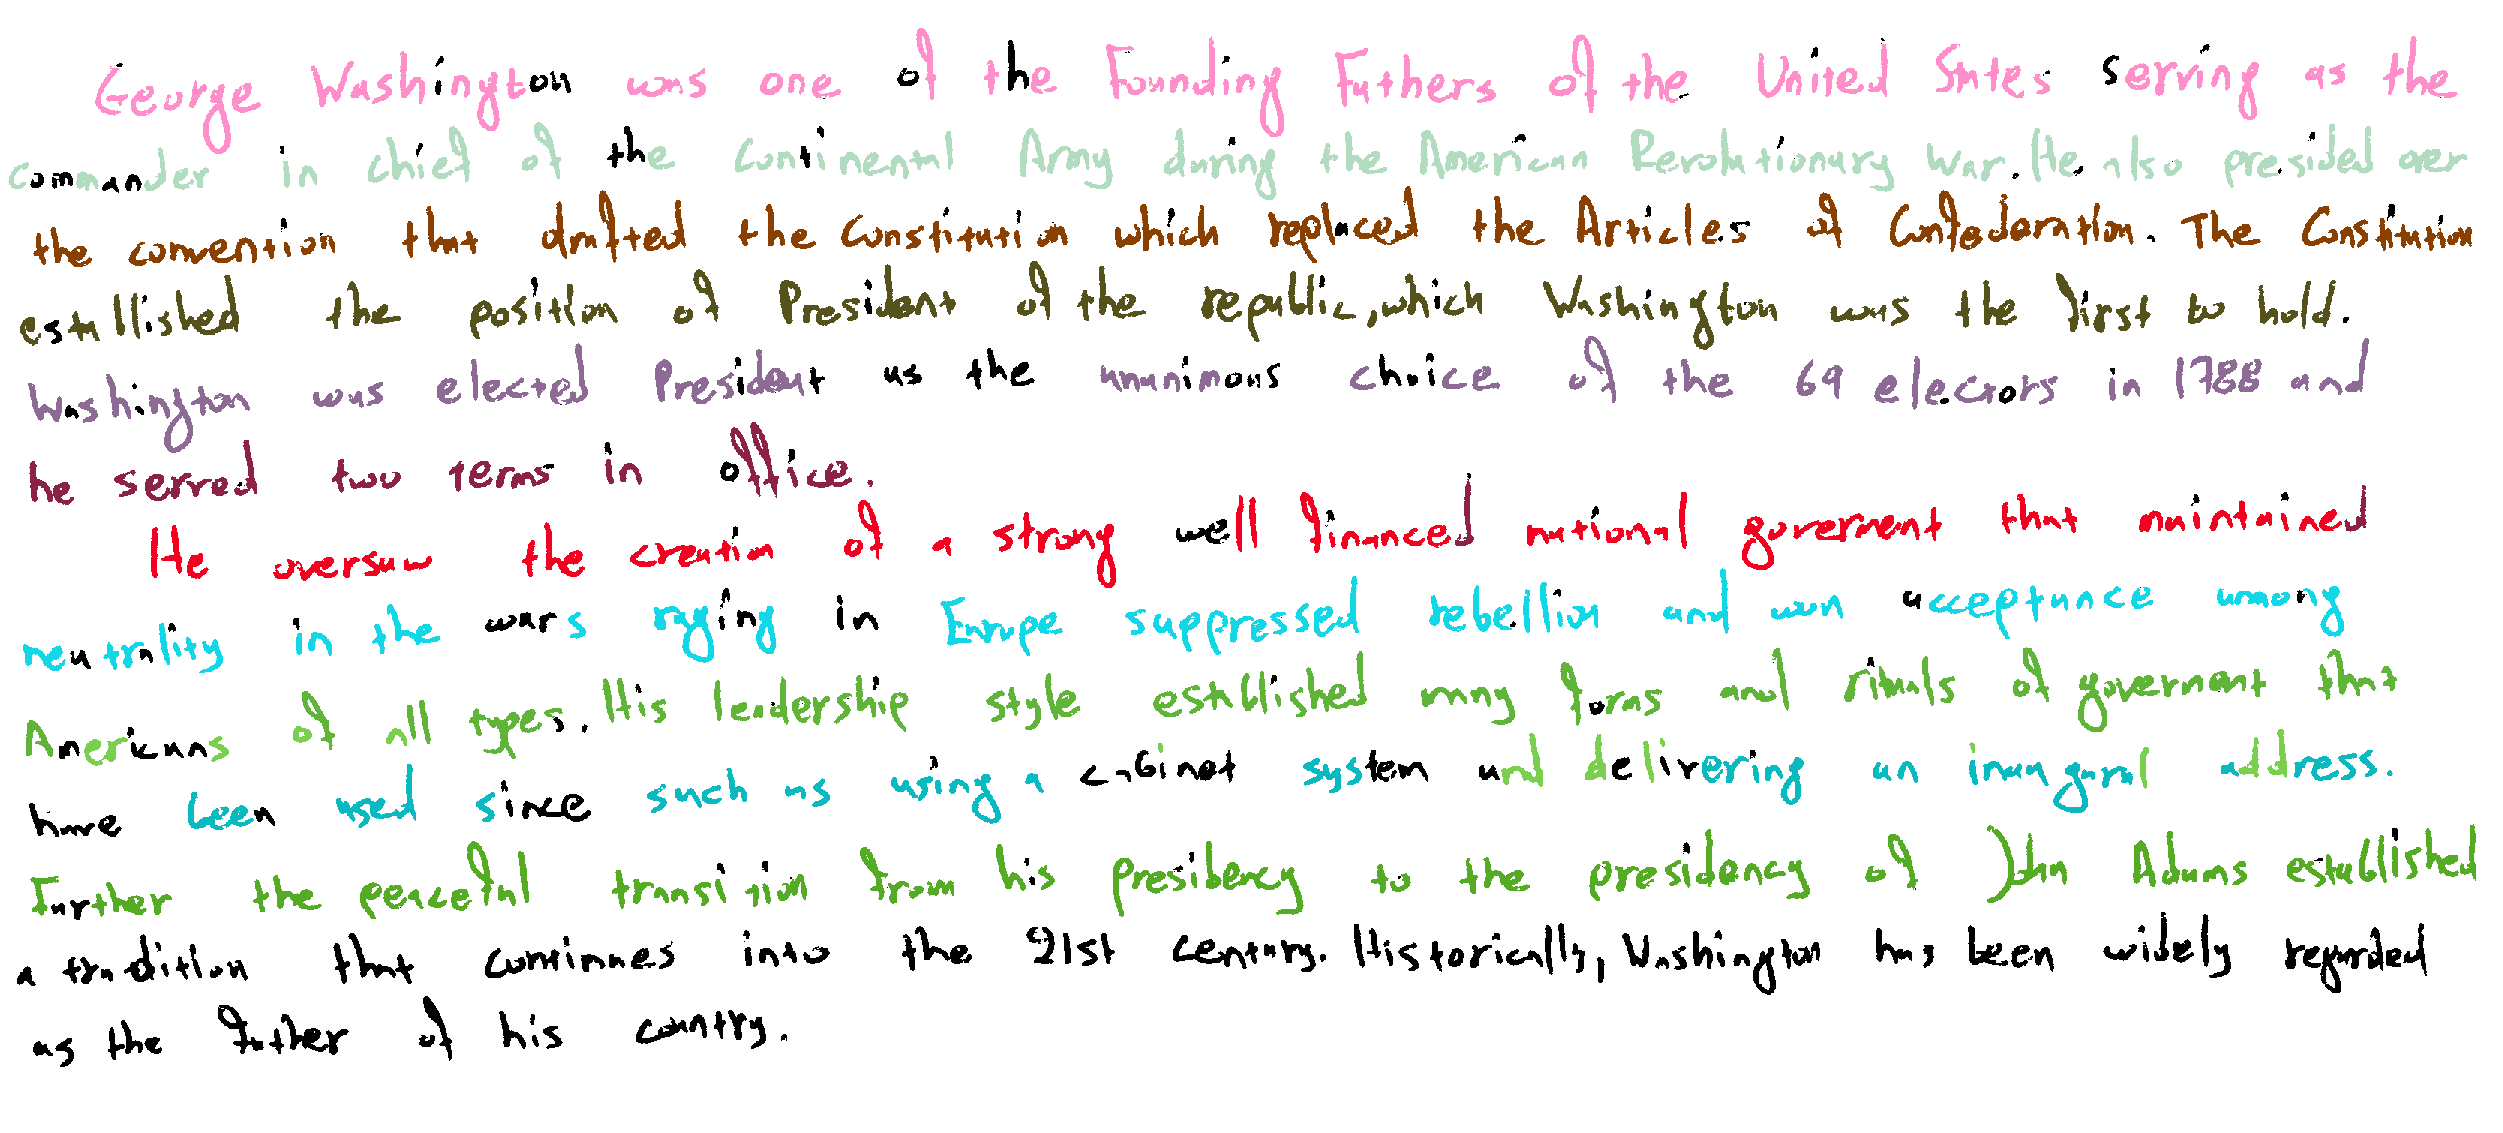 George Washington was one of the Founding Fathers of the United States serving as the
commander in chief of the Continental Army during the American Revolutionary War. He also presided over
the convention that drafted the Constitution which replaced the Articles of Confederation. The Constitution
established the position of President of the republic, which Washington was the first to hold.
Washington was elected President as the unanimous choice of the 69 electors in 1788 and
he served two terms in office.
He oversaw the creation of a strong well financed national goverment that maintained
neutrality in the wars raging in Europe suppressed rebellion and won acceptance among
Americans of all types. His leadership style established many forms and rituals of goverment that
have been used since such as using a cabinet system and delivering an inaugural address.
Further the peaceful transition from his presidency to the presidency of John Adams established
a tradition that continues into the 21st century. Historically, Washington has been widely regarded
as the father of his country.